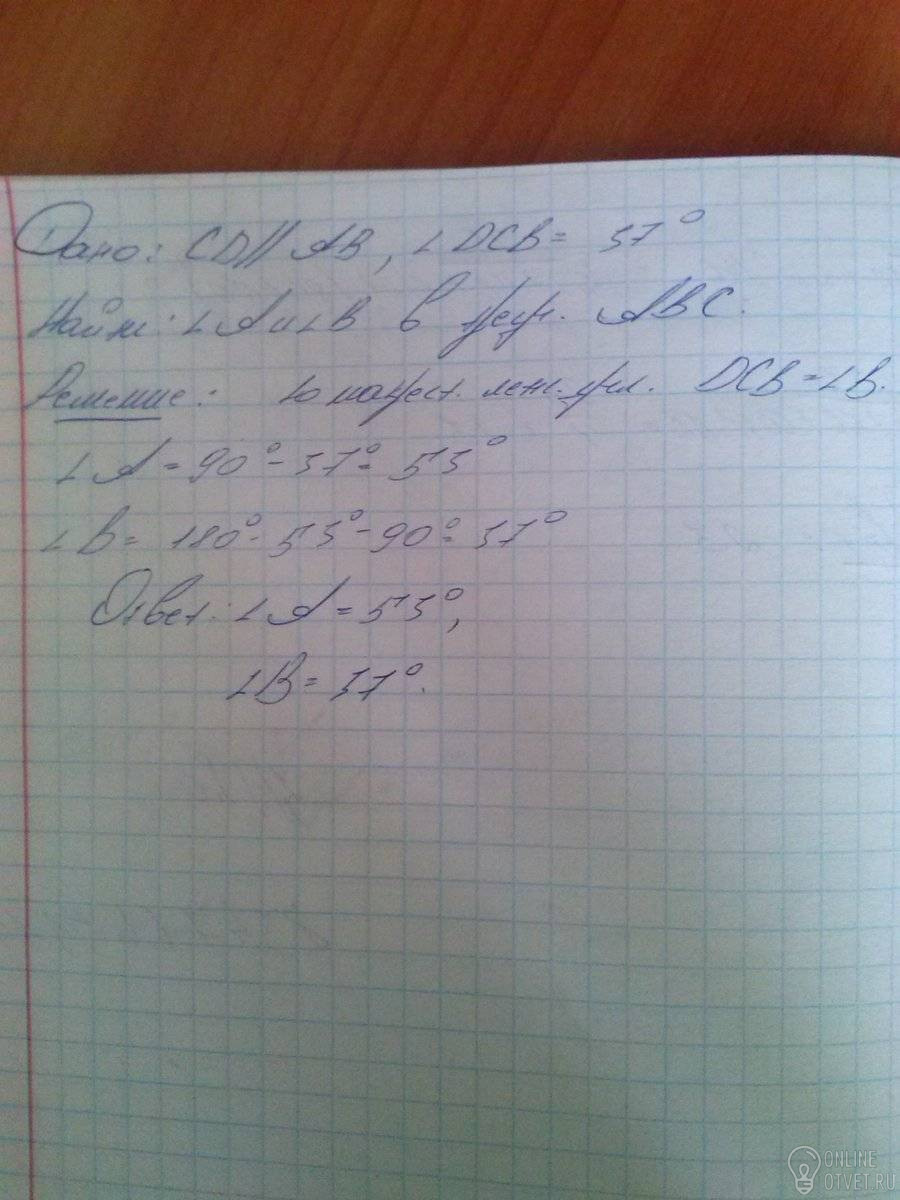 Дано: CD || AB, ∠DCB = 37°
Найти: ∠A и ∠B в треуг. ABC.
Решение: накрест. леж. угл. DCB = ∠B.
∠A = 90° - 37° = 53°
∠B = 180° - 53° - 90° = 37°
Ответ: ∠A = 53°,
∠B = 37°.
ONLINE
OTVET.RU